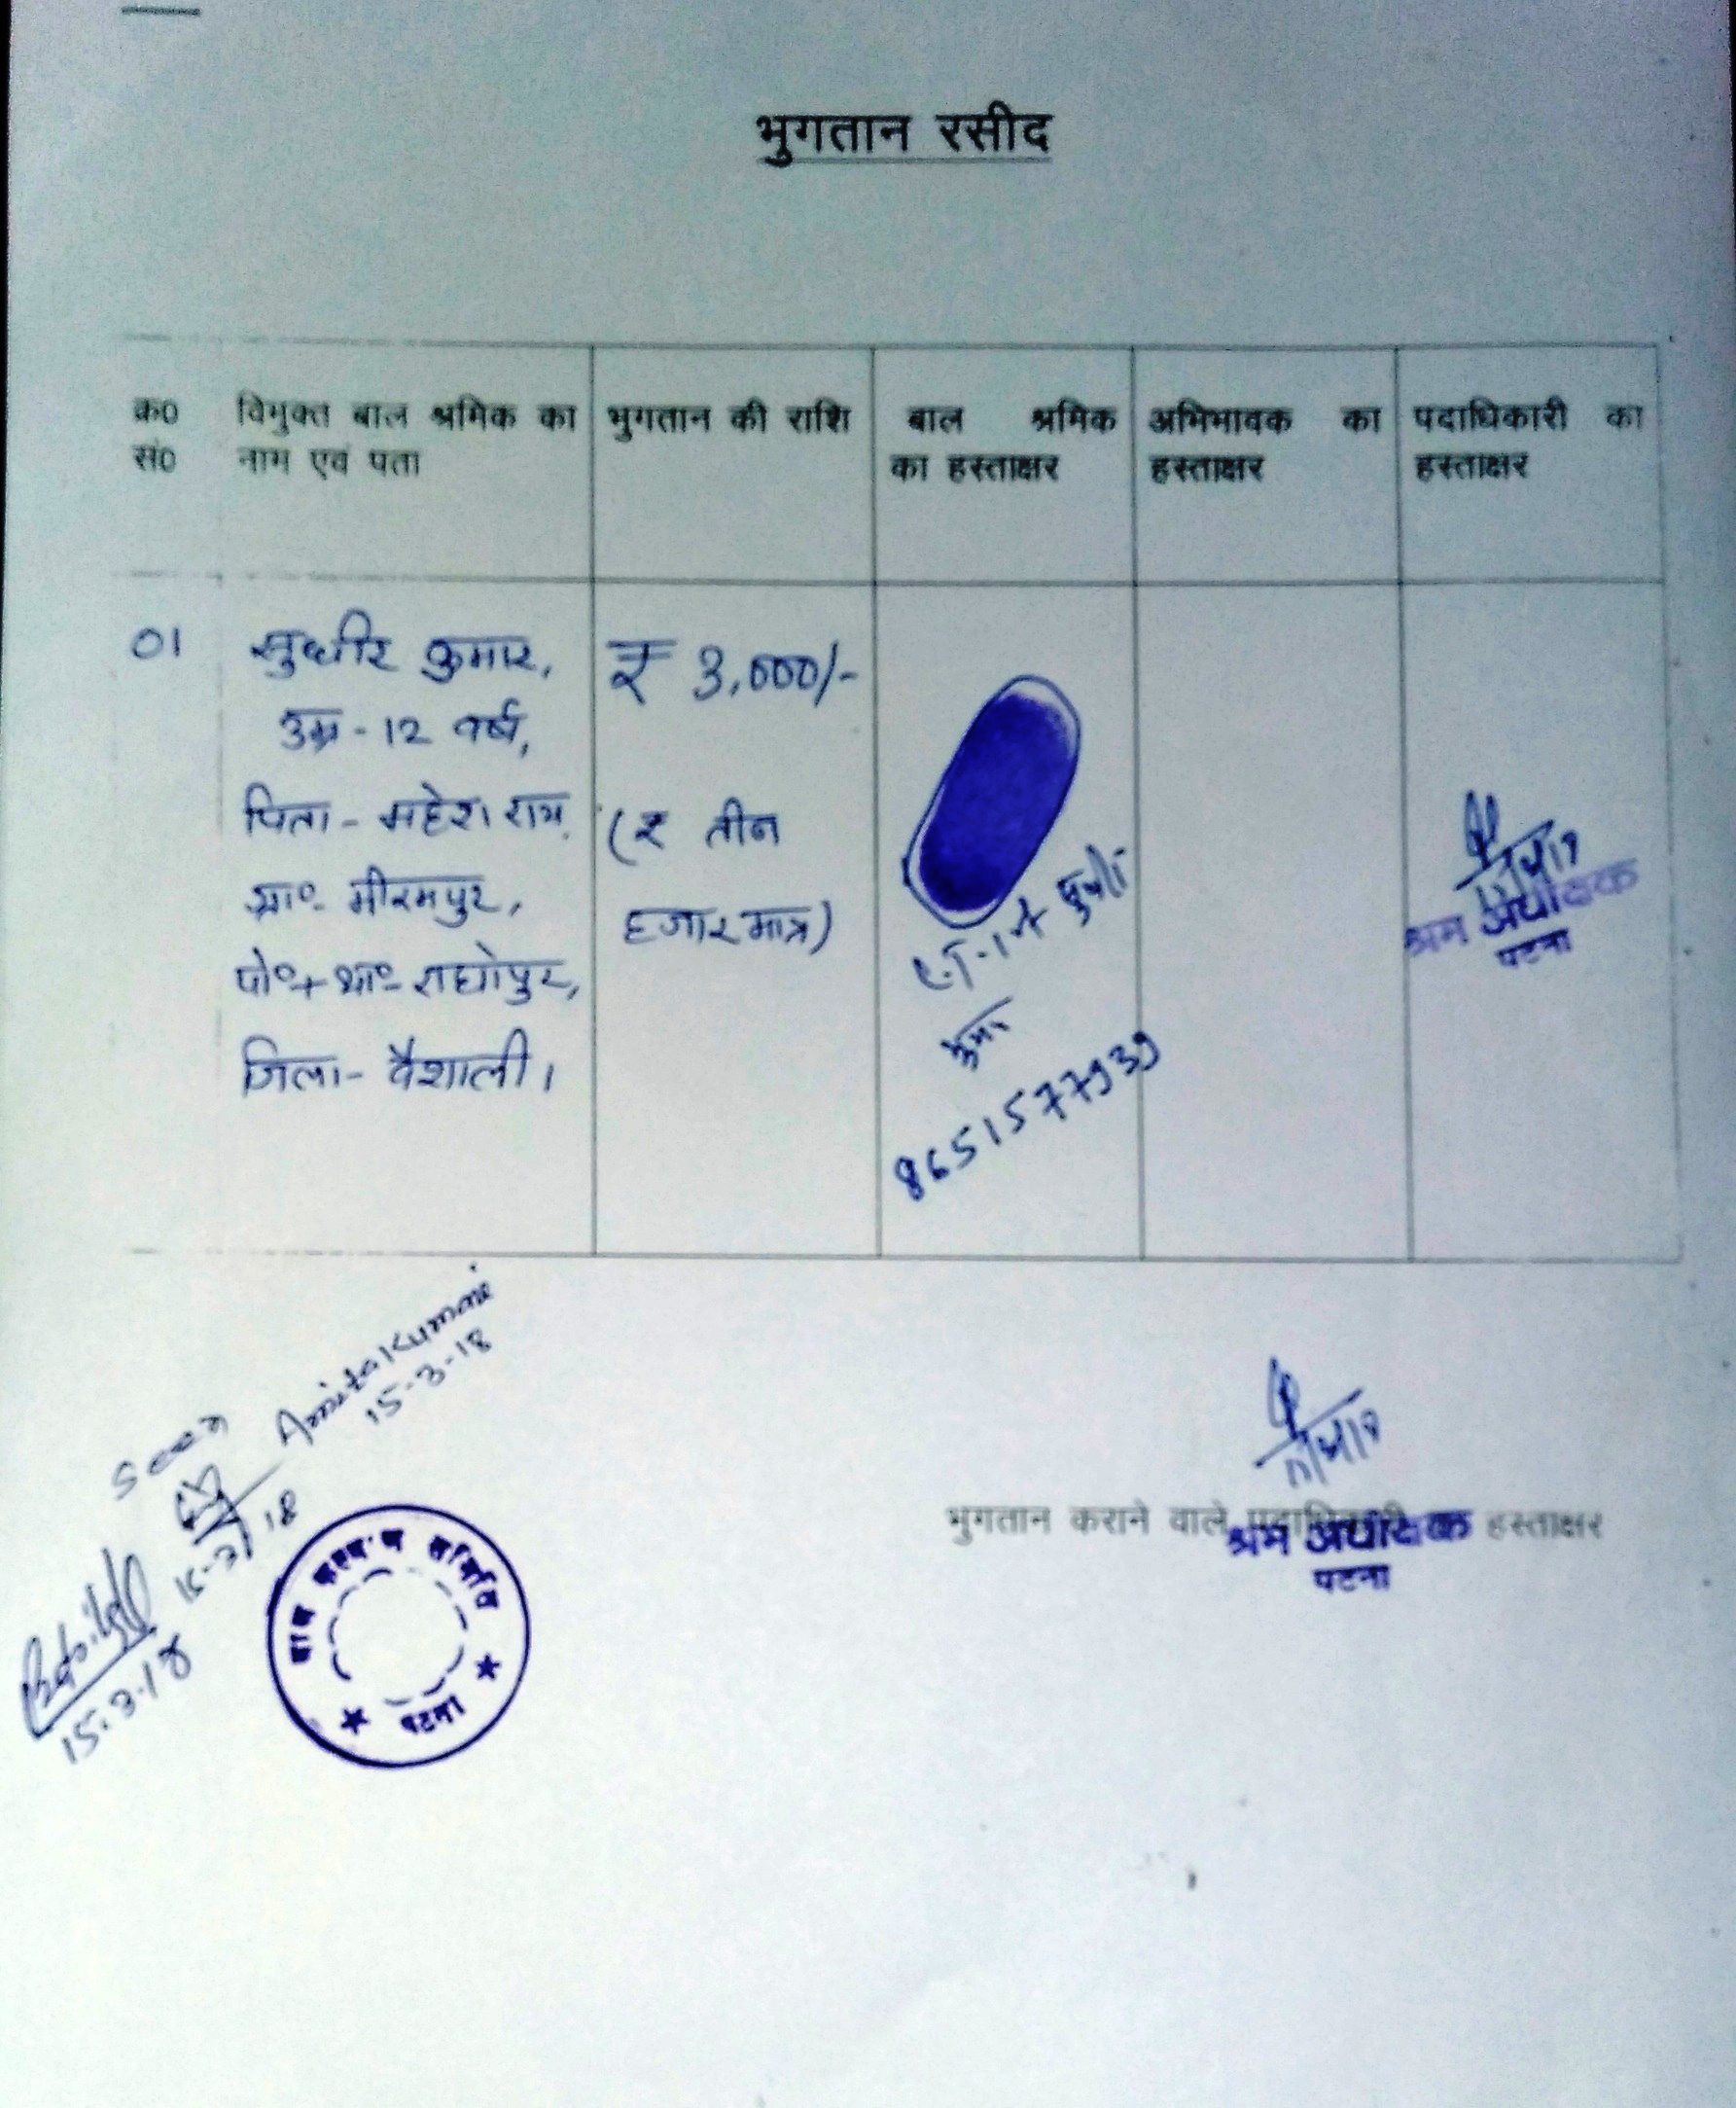 भुगतान रसीद
क्र०
सं०
विमुक्त बाल श्रमिक का
नाम एवं पता
भुगतान की राशि
बाल श्रमिक
का हस्ताक्षर
अभिभावक का
हस्ताक्षर
पदाधिकारी का
हस्ताक्षर
01
सुधीर कुमार,
उम्र - 12 वर्ष,
पिता - महेश राय
ग्रा०- मीरमपुर,
पो०+था०- राघोपुर,
जिला- वैशाली।
₹ 3,000/-
(₹ तीन
हजार मात्र)
8651577939
श्रम अधीक्षक
पटना
Seen
Amita Kumari
15-3-18
15-3-18
15.3.18
बाल कल्याण समिति
पटना
भुगतान कराने वाले पदाधिकारी हस्ताक्षर
श्रम अधीक्षक
पटना